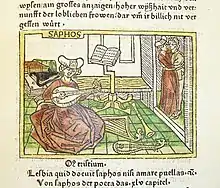 wysen/ am grosses anzaigen hoher wyßhait vnd ver
nunfft der loblichen frowen/ dar vm̄ ir billich nit ver
gessen würt.
SAPHOS
tristium.
Lesbia quid docuit saphos nisi amare puellas.
Von saphos der poeta das .xlv capitel.